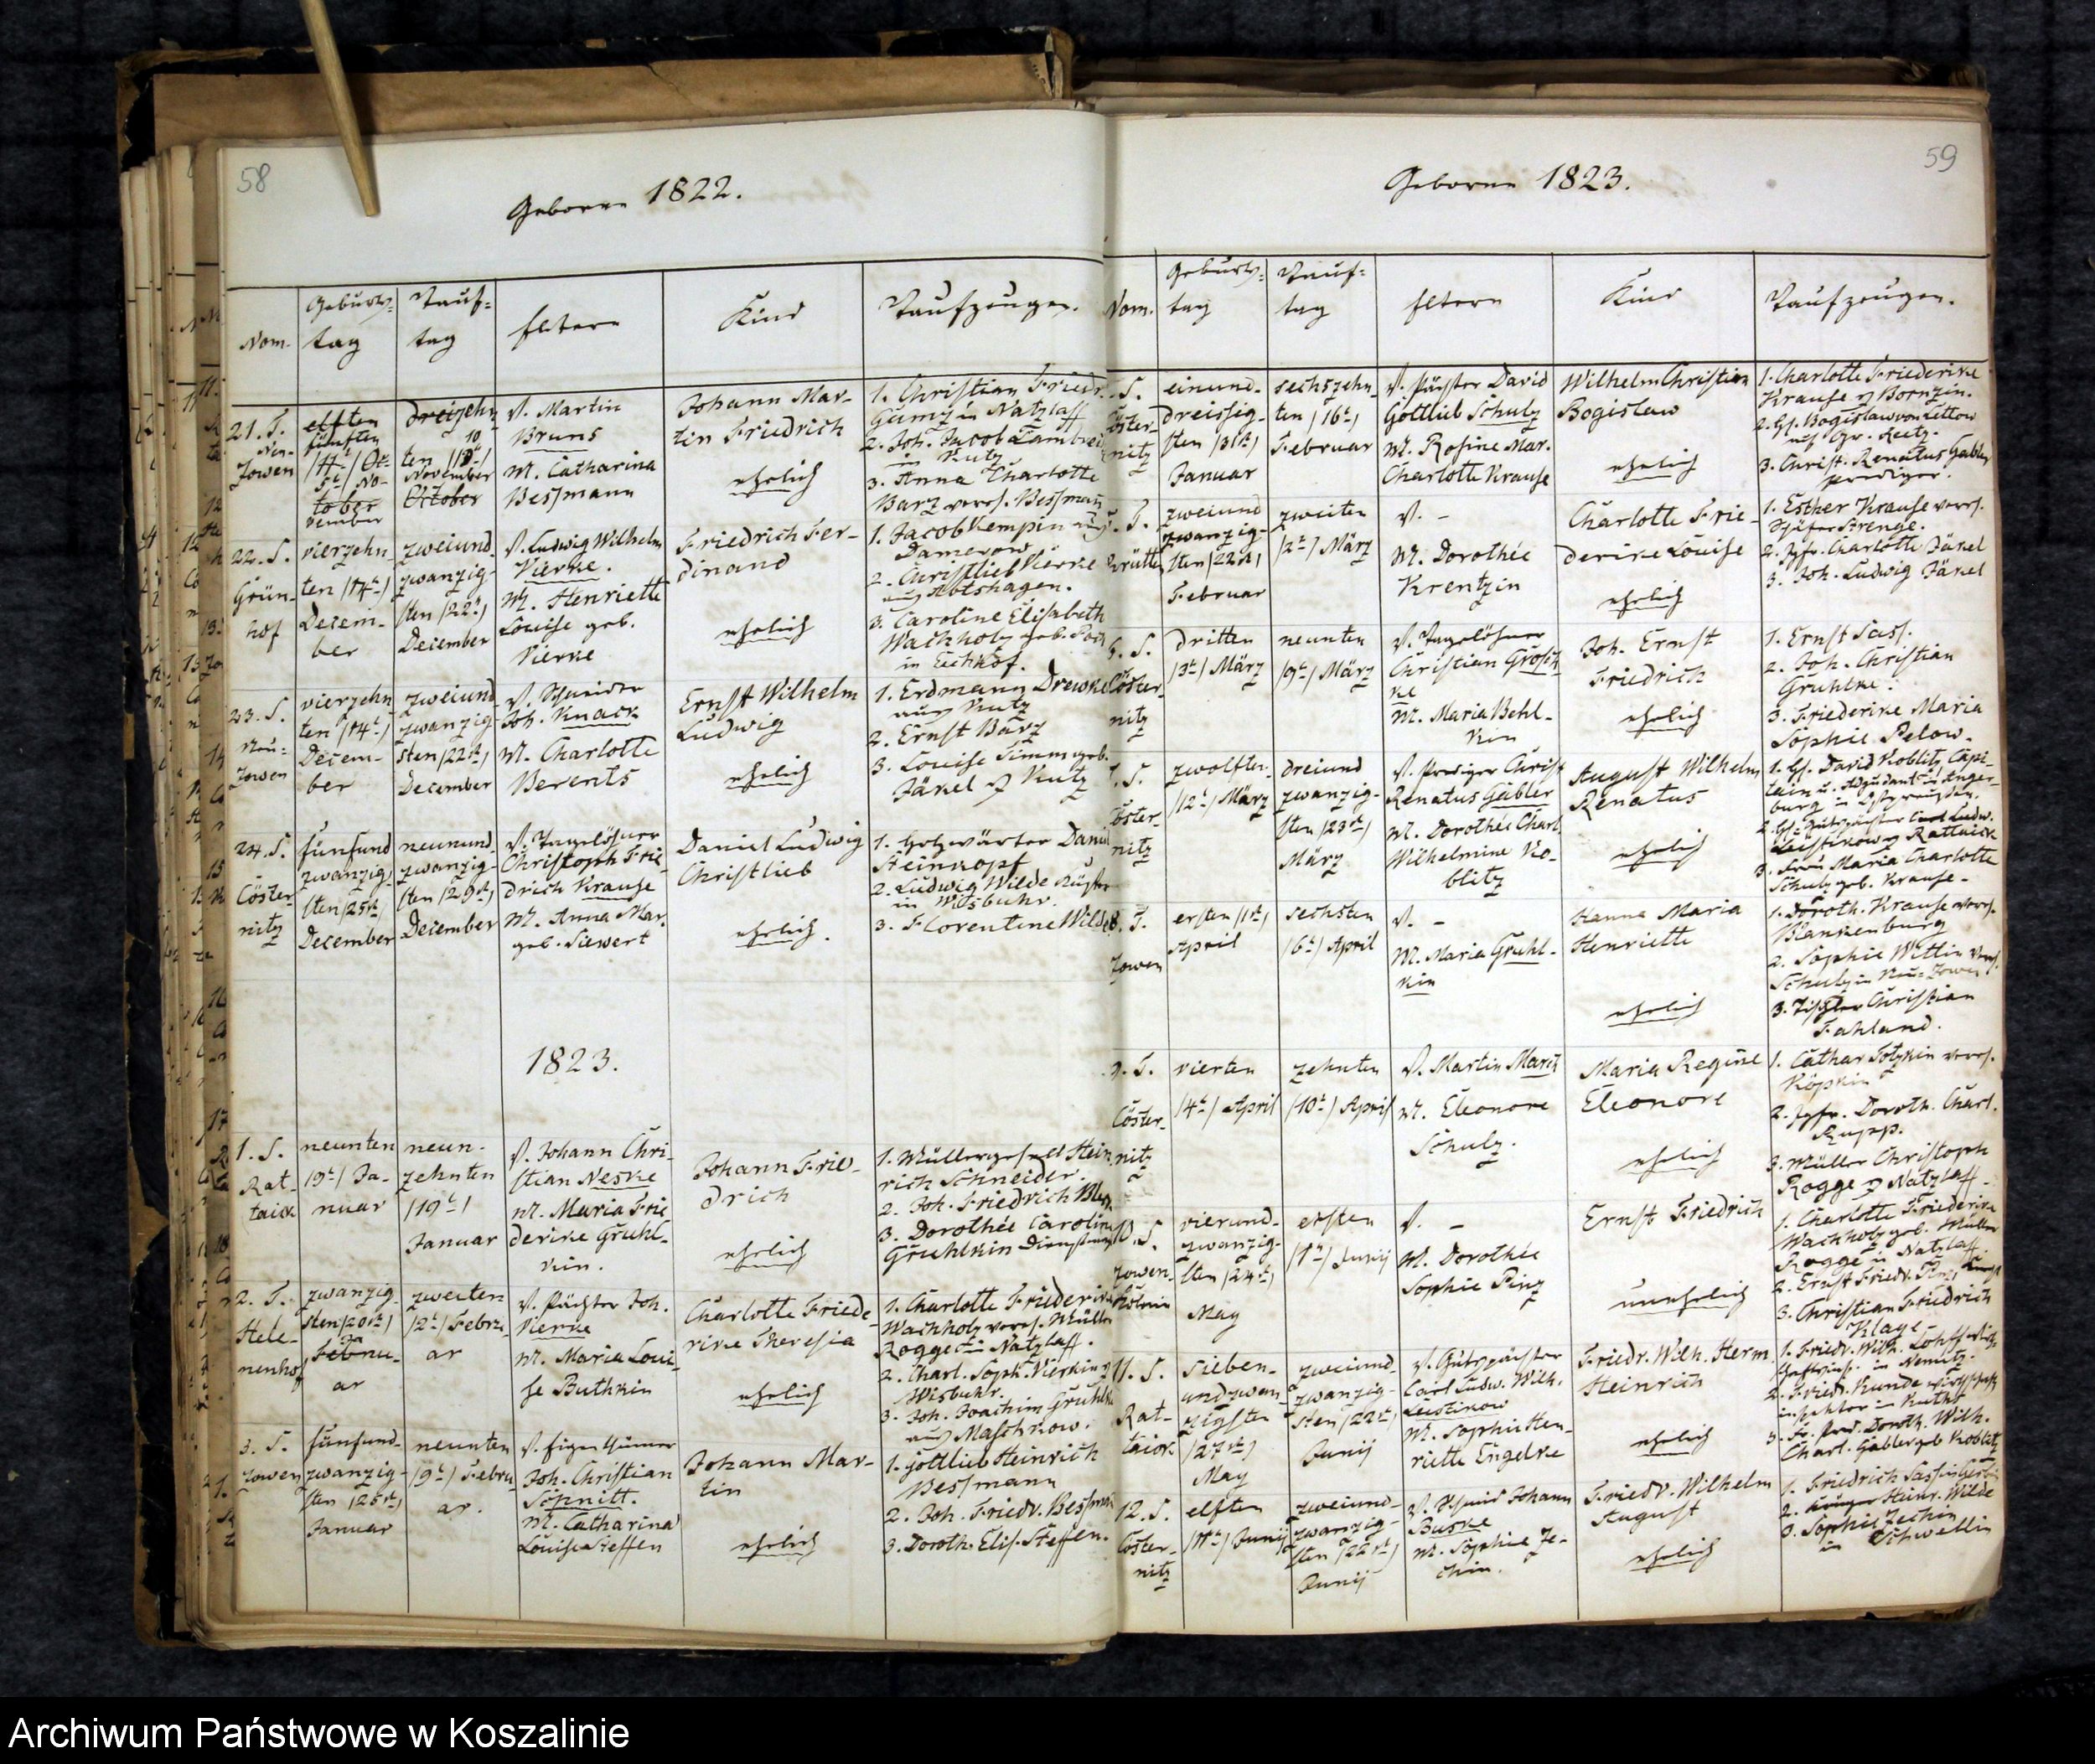 58
Geborne 1822.
Nom.
Geburts-
tag
Tauf-
tag
Eltern
Kind
Taufzeugen.
21. T.
Neu-
Jowen
elften
fünften
5t No-
tober
vember
dreizehn
10
ten
November
October
V. Martin
Bruns
M. Catharina
Bessmann
Johann Mar-
tin Friedrich
ehelich
1. Christian Friedr.
in Natzlaff
2. Joh. Jacob
in Kutz
3. Anna Charlotte
Barz verehl. Bessmann
22. S.
Grün-
hof
vierzehn-
ten (14t)
Decem-
ber
zweiund-
zwanzig-
sten (22t)
December
V. Ludwig Wilhelm
Vierke.
M. Henriette
Louise geb.
Vierke
Friedrich Fer-
dinand
ehelich
1. Jacob Kempin aus
Damerow
2. Christlieb Vierke
aus Abtshagen.
3. Caroline Elisabeth
Wachholz geb.
in Eichhof.
23. S.
Neu-
Jowen
vierzehn
ten (14t)
Decem-
ber
zweiund
zwanzig-
sten (22t)
December
V. Schneider
Joh. Knack
M. Charlotte
Berents
Ernst Wilhelm
Ludwig
ehelich
1. Erdmann Drewke
aus Kutz
2. Ernst Barz
3. Louise Timm geb.
Jäkel Kutz
24. S.
Cöster-
nitz
fünfund
zwanzig-
sten (25t)
December
neunund-
zwanzig-
sten (29t)
December
V. Tagelöhner
Christoph Frie-
drich Krause
M. Anna Mar.
geb. Siewert
Daniel Ludwig
Christlieb
ehelich.
1. Holzwärter Daniel
Steinkopf
2. Ludwig Wilde Küster
in Wisbuhr.
3. Florentine Wilde
1823.
1. S.
Rat-
taick
neunten
(9t) Ja-
nuar
neun-
zehnten
(19t)
Januar
V. Johann Chri-
stian Neske
M. Maria Frie-
derike Gruhl-
kin.
Johann Frie-
drich
ehelich
1. Müllergesell Hein-
rich Schneider.
2. Joh. Friedrich
3. Dorothée Caroline
Gruhlkin
2. T.
Hele-
nenhof
zwanzig-
sten (20t)
Ja
Febru-
ar
zweiten
(2t) Febru-
ar
V. Pächter Joh.
Vierke
M. Maria Loui-
se Buthkin
Charlotte Friede-
rike Theresia
ehelich
1. Charlotte Friederike
Wachholz verehl. Müller
Rogge in Natzlaff.
2. Charl. Soph. Vierkin
Wisbuhr.
3. Joh. Joachim Gruhlke
aus Maschkow.
3. S.
Jowen
fünfund-
zwanzig-
sten (25t)
Januar
neunten
(9t) Febru-
ar.
V. Eigenthümer
Joh. Christian
Söpnitt.
M. Catharina
Louise Steffen
Johann Mar-
tin
ehelich
1. Gottlieb Heinrich
Bessmann
2. Joh. Friedr. Bessmann
3. Doroth. Elis. Steffen.
59
Geborne 1823.
Nom.
Geburts-
tag
Tauf-
tag
Eltern
Kind
Taufzeugen.
S.
Cöster-
nitz
einund-
dreissig-
sten (31t)
Januar
sechszehn-
ten (16t)
Februar
V. Pächter David
Gottlieb Schulz
M. Rosine Mar.
Charlotte Krause
Wilhelm Christian
Bogislaw
ehelich
1. Charlotte Friederike
Krause Bornzin.
2. H. Bogislaw von Lettow
auf Gr. Reetz.
3. Christ. Renatus Gabler
Prediger.
T.
zweiund
zwanzig-
sten (22t)
Februar
zweiten
(2t) März
V. –
M. Dorothée
Krentzin
Charlotte Frie-
derike Louise
ehelich
1. Esther Krause verehl.
Schäfer Krenge.
2. Jgfr. Charlotte Jäkel
3. Joh. Ludwig Jäkel
6. S.
Cöster-
nitz
dritten
(3t) März
neunten
(9t) März
V. Tagelöhner
Christian Grosch-
ke
M. Maria Behl-
kin
Joh. Ernst
Friedrich
ehelich
1. Ernst Sass.
2. Joh. Christian
Gruhlke.
3. Friederike Maria
Sophie Pelow.
S.
Cöster-
nitz
zwölften
(12t) März
dreiund
zwanzig-
sten (23t)
März
V. Prediger Christ
Renatus Gabler
M. Dorothée Charl.
Wilhelmine Ko-
blitz
August Wilhelm
Renatus
ehelich
1. H. David Koblitz Capi-
tain u. Adjudant in Anger-
burg in Ostpreußen.
2. H. Gutspächter Carl Ludw.
Leistikow Rattaick
3. Frau Maria Charlotte
Schulz geb. Krause.
8. T.
Jowen
ersten (1t)
April
sechsten
(6t) April
V. –
M. Maria Gruhl-
kin
Hanne Maria
Henriette
ehelich
1. Doroth. Krause verehl.
Blankenburg
2. Sophie Wittin verehl.
Schulz in Neu-Jowen
3. Tischler Christian
Fahland.
9. T.
Cöster-
nitz
vierten
(4t) April
zehnten
(10t) April
V. Martin
M. Eleonore
Schulz.
Maria Regine
Eleonore
ehelich
1. Cathar verehl.
Köpkin
2. Jgfr. Doroth. Charl.
Rupp.
3. Müller Christoph
Rogge Natzlaff
10. S.
Jowen-
vierund-
zwanzig-
sten (24t)
May
ersten
(1t) Junij
V. –
M. Dorothée
Sophie Pinz
Ernst Friedrich
unehelich
1. Charlotte Friederike
Wachholz geb. Müller
Rogge in Natzlaff.
2. Ernst Friedr.
3. Christian Friedrich
Klage
11. S.
Rat-
taick
sieben-
undzwan-
zigsten
(27t)
May
zweiund-
zwanzig-
sten (22t)
Junij
V. Gutspächter
Carl Ludw. Wilh.
Leistikow
M. Sophie Hen-
riette Engelke
Friedr. Wilh. Herm.
Heinrich
ehelich
1. Friedr. Wilh.
in Nemitz.
2. Friedr. Kunde Wirthsch.
inspektor in
3. Fr. Pred. Doroth. Wilh.
Charl. Gabler geb Koblitz
12. S.
Cöster-
nitz
elften
(11t) Junij
zweiund-
zwanzig-
sten (22t)
Junij
V. Schmid Johann
Buske
M. Sophie Ze-
chin.
Friedr. Wilhelm
August
ehelich
1. Friedrich Sass
2. Heinr. Wilde
3. Sophie Zechin
in Schwellin
Archiwum Państwowe w Koszalinie